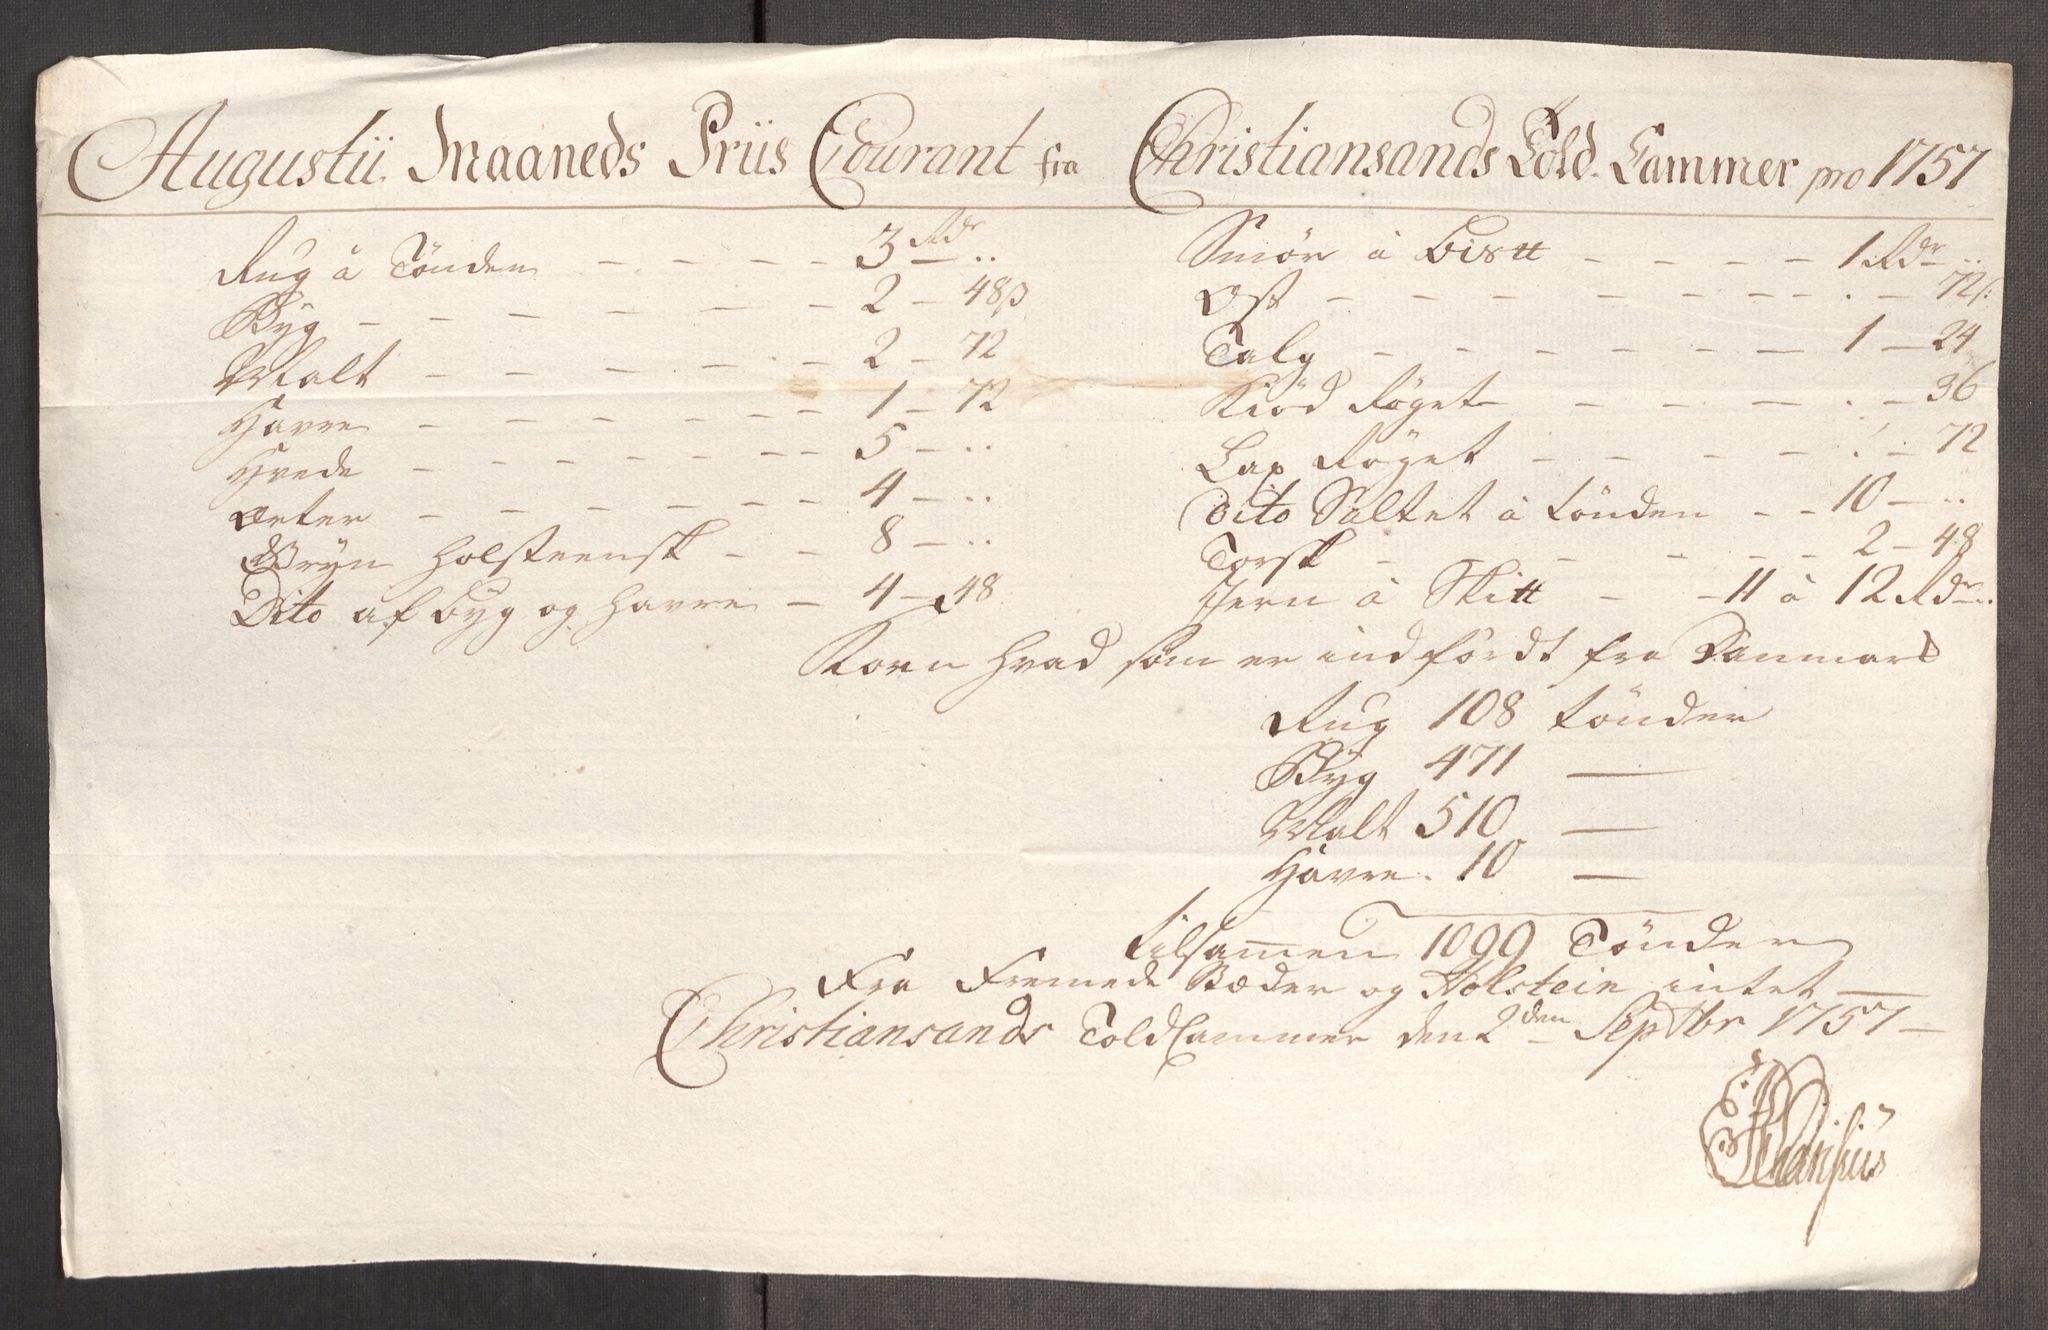 Augustii Maaneds Priis Courant fra Christiansands Told Cammer pro 1757
Rug à Tönden - - - - 3 Rdr ..
Byg - - - - - - - 2 - 48 ß
Malt - - - - - - 2 - 72
Havre - - - - - - 1 - 72
Hvede - - - - - - 5 - ..
Ærter - - - - - - 4 - ..
Gryn Holsteensk - - 8 - ..
Dito af Byg og Havre - 4 - 48
Smör à Bis℔ - - - - 1 Rdr ..
Ost - - - - - - - - . - 72 ß
Talg - - - - - - - 1 - 24
Kiöd Röget - - - - . - 36
Lax Röget - - - - . - 72
Dito Saltet à tönden - - 10 - ..
Torsk - - - - - - 2 - 48
Jern à Ski℔ - - 11 à 12 Rdr ..
Korn hvad som er indfördt fra Danmark
Rug 108 tönder
Byg 471 —
Malt 510 —
Havre. 10 —
tilsamen 1099 Tönder
Fra Fremede Stæder og Holstein intet —
Christiansands ToldCammer den 2den Septbr 1757 —